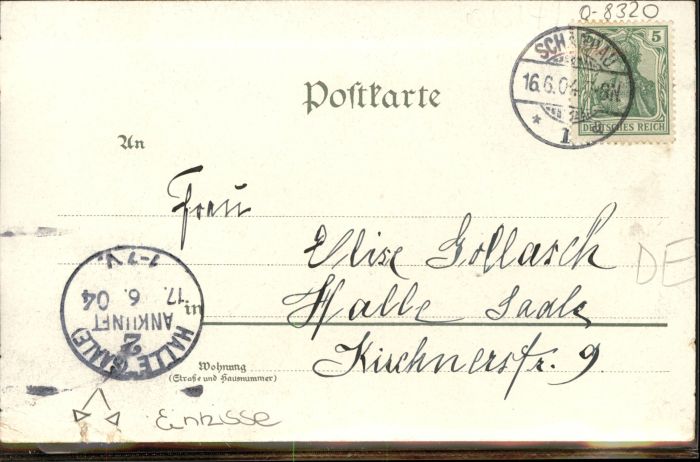 0-8320
5
SCHANDAU
16.6.04
8N
* 1 b
DEUTSCHES REICH
Postkarte
An
Frau
Elise Gollasch
in Halle Saale
Kirchnerstr. 9
Wohnung
(Straße und Hausnummer)
HALLE (SAALE)
2
ANKUNFT
17. 6. 04
7-7 V.
DE
Einrisse